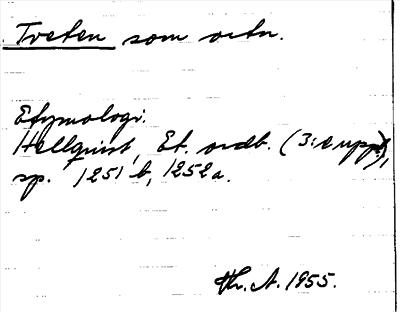 Tveten som ortn.
Etymologi.
Hellquist, Et. ordb. (3:e uppl.),
sp. 1251 b, 1252 a.
Hr. A. 1955.